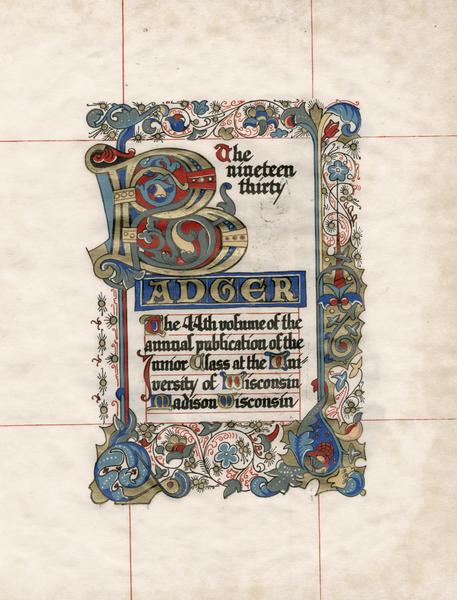 The
nineteen
thirty
BADGER
The 44th volume of the
annual publication of the
Junior Class at the Uni-
versity of Wisconsin
Madison Wisconsin